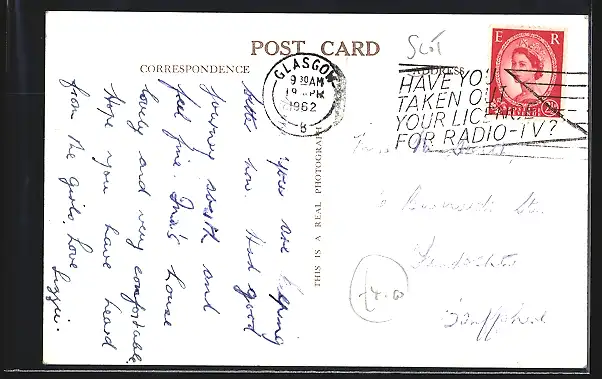 POST CARD
CORRESPONDENCE
ADDRESS
Scot
E R
GLASGOW
9 30 AM
19 APR
1962
B
HAVE YOU
TAKEN OUT
YOUR LICENCE
FOR RADIO-TV?
THIS IS A REAL PHOTOGRAPH
you are keeping
better now. Had good
journey south and
feel fine. Ina's house
lovely and very comfortable.
Hope you have heard
from the girls, Love
Lizzie.
6 St.
Banffshire